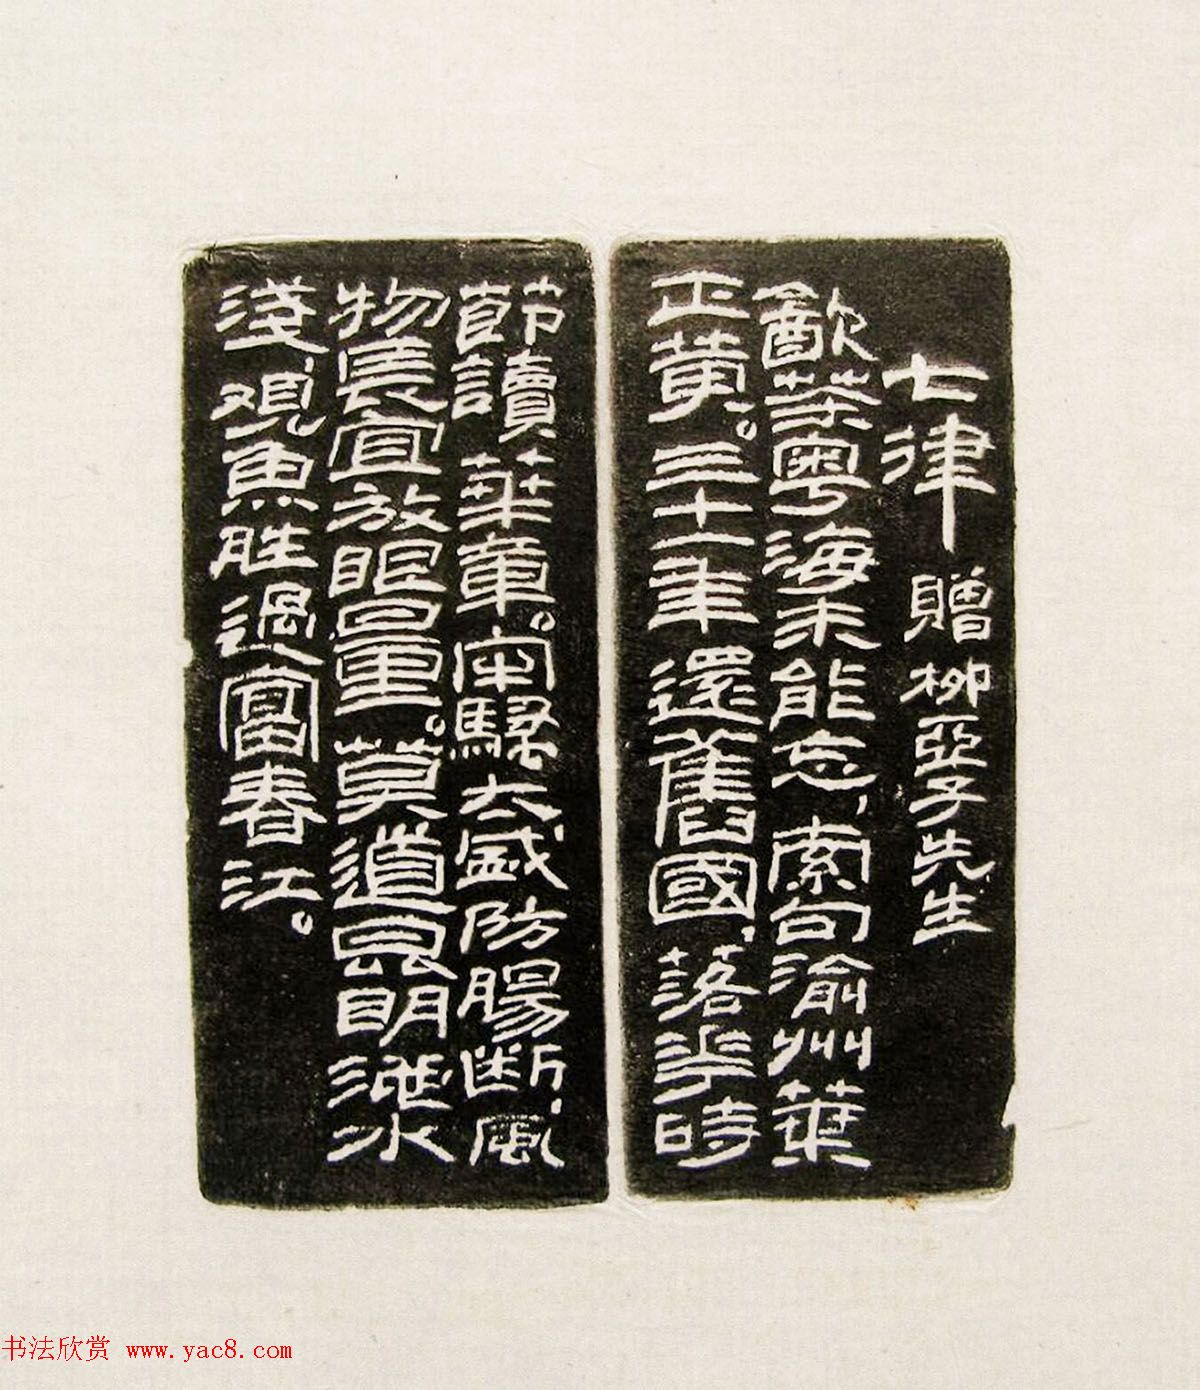 七律 贈柳亞子先生
飲茶粵海未能忘,索句渝州葉
正黄。三十一年還舊國,落花時
節讀華章。牢騷太盛防腸斷,風
物長宜放眼量。莫道昆明池水
淺,观魚胜過富春江。
书法欣赏 www.yac8.com